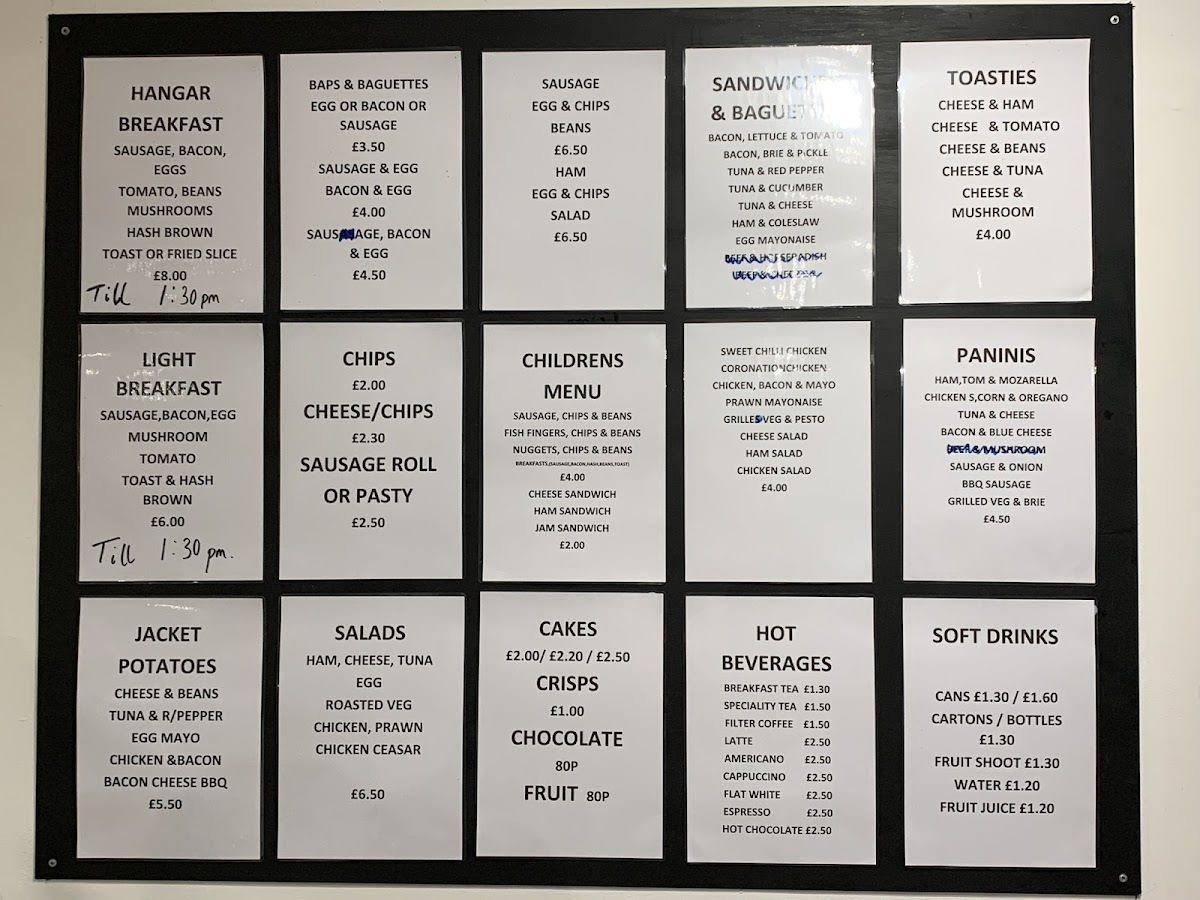 HANGAR
BREAKFAST
SAUSAGE, BACON,
EGGS
TOMATO, BEANS
MUSHROOMS
HASH BROWN
TOAST OR FRIED SLICE
£8.00
Till 1:30pm
BAPS & BAGUETTES
EGG OR BACON OR
SAUSAGE
£3.50
SAUSAGE & EGG
BACON & EGG
£4.00
SAUSAGE, BACON
& EGG
£4.50
SAUSAGE
EGG & CHIPS
BEANS
£6.50
HAM
EGG & CHIPS
SALAD
£6.50
SANDWICHES
& BAGUETTES
BACON, LETTUCE & TOMATO
BACON, BRIE & PICKLE
TUNA & RED PEPPER
TUNA & CUCUMBER
TUNA & CHEESE
HAM & COLESLAW
EGG MAYONAISE
BEEF & HORSERADISH
TOASTIES
CHEESE & HAM
CHEESE & TOMATO
CHEESE & BEANS
CHEESE & TUNA
CHEESE &
MUSHROOM
£4.00
LIGHT
BREAKFAST
SAUSAGE,BACON,EGG
MUSHROOM
TOMATO
TOAST & HASH
BROWN
£6.00
Till 1:30 pm.
CHIPS
£2.00
CHEESE/CHIPS
£2.30
SAUSAGE ROLL
OR PASTY
£2.50
CHILDRENS
MENU
SAUSAGE, CHIPS & BEANS
FISH FINGERS, CHIPS & BEANS
NUGGETS, CHIPS & BEANS
BREAKFASTS,(SAUSAGE,BACON,HASH,BEANS,TOAST)
£4.00
CHEESE SANDWICH
HAM SANDWICH
JAM SANDWICH
£2.00
SWEET CHILLI CHICKEN
CORONATIONCHICKEN
CHICKEN, BACON & MAYO
PRAWN MAYONAISE
GRILLED VEG & PESTO
CHEESE SALAD
HAM SALAD
CHICKEN SALAD
£4.00
PANINIS
HAM,TOM & MOZARELLA
CHICKEN S,CORN & OREGANO
TUNA & CHEESE
BACON & BLUE CHEESE
BEEF & MUSHROOM
SAUSAGE & ONION
BBQ SAUSAGE
GRILLED VEG & BRIE
£4.50
JACKET
POTATOES
CHEESE & BEANS
TUNA & R/PEPPER
EGG MAYO
CHICKEN &BACON
BACON CHEESE BBQ
£5.50
SALADS
HAM, CHEESE, TUNA
EGG
ROASTED VEG
CHICKEN, PRAWN
CHICKEN CEASAR
£6.50
CAKES
£2.00/ £2.20 / £2.50
CRISPS
£1.00
CHOCOLATE
80P
FRUIT 80P
HOT
BEVERAGES
BREAKFAST TEA £1.30
SPECIALITY TEA £1.50
FILTER COFFEE £1.50
LATTE £2.50
AMERICANO £2.50
CAPPUCCINO £2.50
FLAT WHITE £2.50
ESPRESSO £2.50
HOT CHOCOLATE £2.50
SOFT DRINKS
CANS £1.30 / £1.60
CARTONS / BOTTLES
£1.30
FRUIT SHOOT £1.30
WATER £1.20
FRUIT JUICE £1.20